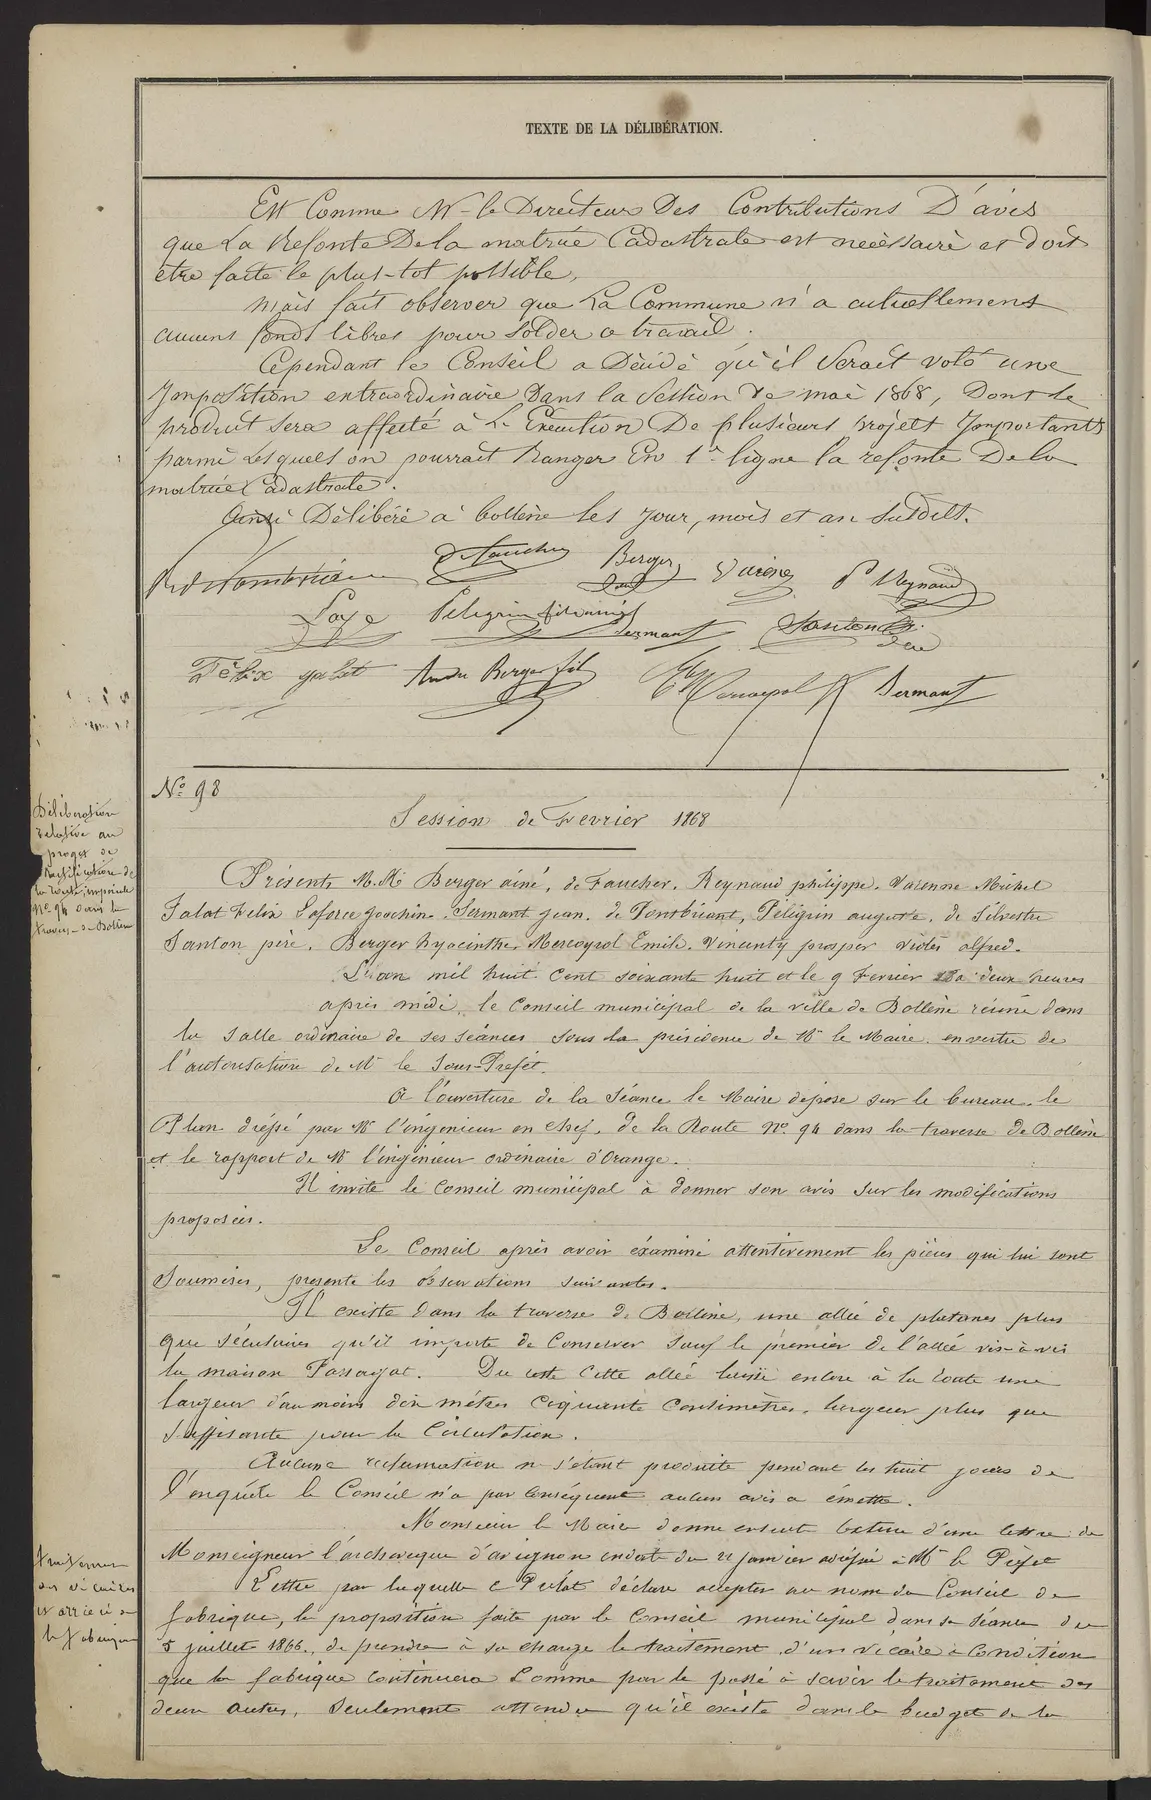 TEXTE DE LA DÉLIBÉRATION.
Est Comme Mr le Directeur Des Contributions D'avis
que La Refonte De la matrice Cadastrale est necèssaire et doit
etre faite le plus-tot possible,
mais fait observer que La Commune n'a actuellement
aucuns fonds libres pour solder ce travail.
Cépendant le Conseil a Décidé qu'il Serait voté une
Imposition extraordinaire Dans la Session de mai 1868, Dont le
produit sera affecté à L'Exécution De plusieurs projets Importants
parmi Lesquels on pourrait Ranger En 1re ligne la refonte De la
matrice Cadastrale.
Ainsi Délibéré à bollène les Jour, mois et an Susdits.
de Faucher Berger Varène P Reynaud
Laye Pélegrin Sermant Santon
Félix galat André Berger fils E Mercoyrol Sermant
No 98
Session de Fevrier 1868
Délibération
relative au
projet de
Rectification de
la route impériale
No 94 dans la
traverse de Bollène
Présents M.M. Berger ainé, de Faucher, Reynaud philippe, Varenne Michel
Galat Felix Laforce Joachin, Sermant Jean, de Pontbriant, Péligrin auguste, de Silvestre
Santon père, Berger hyacinthe, Mercoyrol Emile, Vincenty prosper Vidés alfred.
L'an mil huit cent soixante huit et le 9 Fevrier à deux heures
après midi, le Conseil municipal de la ville de Bollène réuni dans
la Salle ordinaire de ses séances sous la présidence de Mr le Maire en vertu de
l'autorisation de Mr le Sous-Prefet.
A l'ouverture de la Séance le Maire dépose sur le bureau, le
Plan dréssé par Mr l'ingénieur en chef, de la Route No 94 dans la traverse de Bollène
et le rapport de Mr l'ingénieur ordinaire d'Orange.
Il invite le Conseil municipal à donner son avis sur les modifications
proposées.
Le Conseil après avoir éxaminé attentivement les pièces qui lui sont
soumises, presente les observations suivantes.
Il existe dans la traverse de Bollène, une allée de platanes plus
que séculaires qu'il importe de Conserver sauf le premier de l'allée vis-à-vis
la maison Passayat. Du reste cette allée laisse encore à la route une
largeur d'au moins dix mètres cinquante centimètres, largeur plus que
suffisante pour la Circulation.
Aucune reclamation n s'étant produite pendant les huit jours de
l'enquête le Conseil n'a par conséquent aucun avis a émettre.
Monsieur le Maire donne ensuite lecture d'une lettre de
Monseigneur l'archeveque d'avignon en date du 21 janvier adressée à Mr le Préfet
Traitement
des vicaires
et arriéré de
la fabrique
Lettre par laquelle ce Prélat déclare accepter au nom du Conseil de
fabrique, la proposition faite par le Conseil municipal dans sa séance du
5 juillet 1866, de prendre à sa charge le traitement d'un Vicaire à condition
que la fabrique continuera Comme par le passé à servir le traitement des
deux autres, seulement attendu qu'il existe dans le budget de la